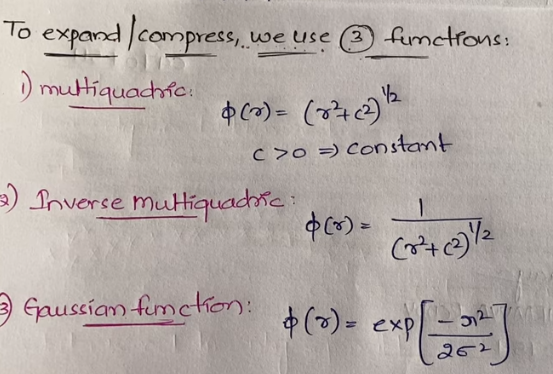 To expand/compress, we use ③ functions:
1) multiquadric:
ϕ(r) = (r²+c²)^1/2
c>0 ⇒ constant
2) Inverse multiquadric:
ϕ(r) = 1/(r²+c²)^1/2
③ Gaussian function:
ϕ(r) = exp[-r²/2σ²]